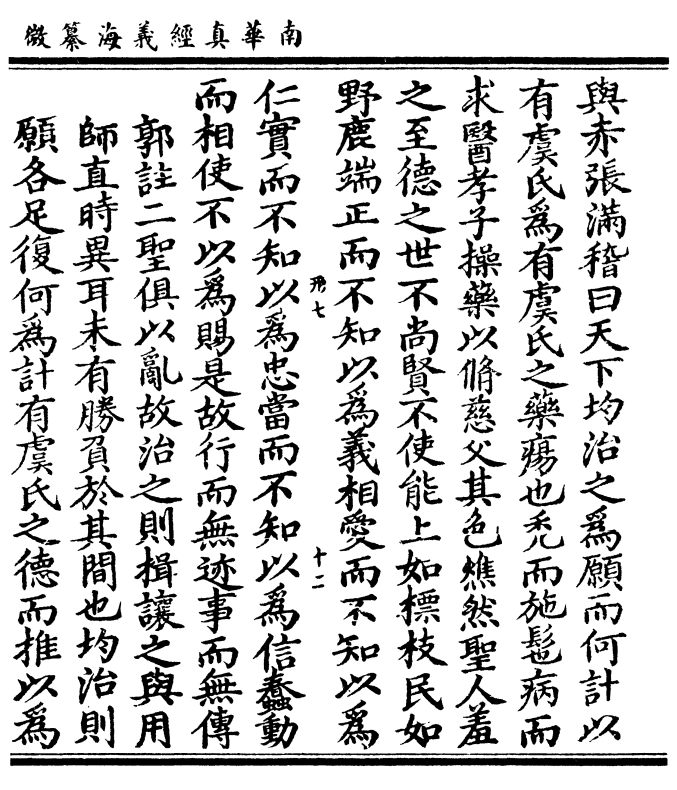 南華真經義海纂微
與赤張滿稽曰天下均治之爲願而何計以
有虞氏爲有虞氏之藥瘍也禿而施髢病而
求醫孝子操藥以脩慈父其色燋然聖人羞
之至德之世不尚賢不使能上如標枝民如
野鹿端正而不知以爲義相愛而不知以爲
飛七
十二
仁實而不知以爲忠當而不知以爲信蠢動
而相使不以爲賜是故行而無迹事而無傳
郭註二聖俱以亂故治之則揖讓之與用
師直時異耳未有勝負於其間也均治則
願各足復何爲計有虞氏之德而推以爲